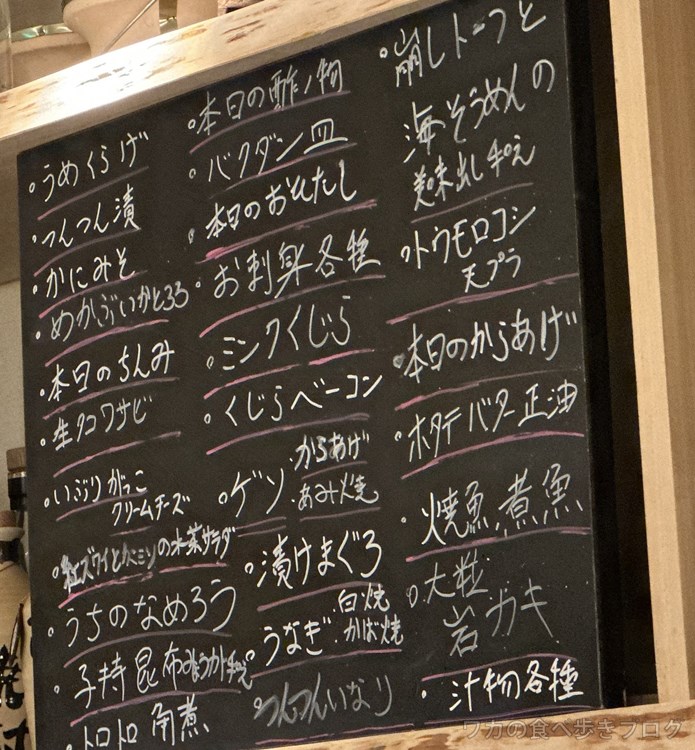 うめくらげ
つんつん漬
かにみそ
めかぶいかとろろ
本日のちんみ
生タコワサビ
いぶりがっこ
クリームチーズ
紅ズワイとカニミソの水菜サラダ
うちのなめろう
子持昆布のみょうが和え
トロトロ角煮
本日の酢ノ物
バクダン皿
本日のおひたし
お刺身各種
ミンクくじら
くじらベーコン
ゲソ
からあげ
あみ焼
漬けまぐろ
うなぎ
白焼
かば焼
つんつんいなり
崩しトーフと
海そうめんの
美味出し和え
トウモロコシ
天プラ
本日のからあげ
ホタテバター正油
焼魚,煮魚
大粒
岩ガキ
汁物各種
ワカの食べ歩きブログ